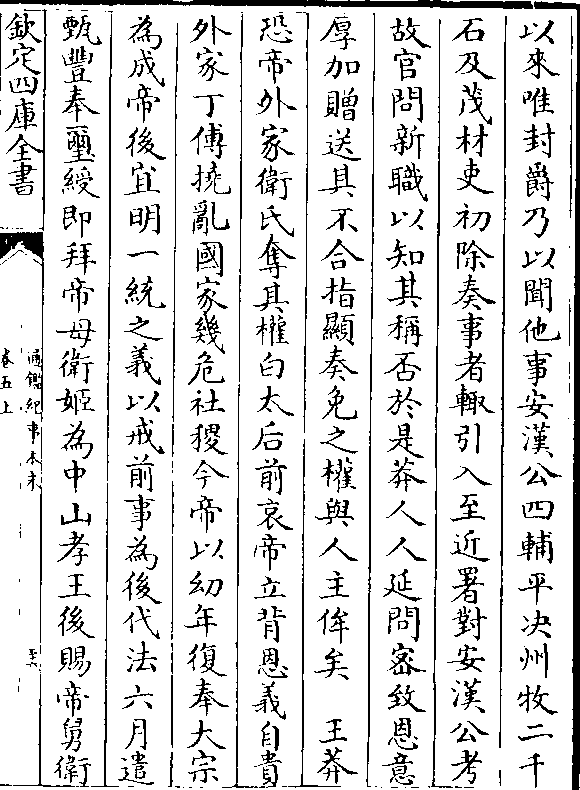 以來唯封爵乃以聞他事安漢公四輔平决州牧二千
石及茂材吏初除奏事者輙引入至近署對安漢公考
故官問新職以知其稱否於是莽人人延問宻致恩意
厚加贈送其不合指顯奏免之權與人主侔矣　王莽
恐帝外家衛氏奪其權白太后前哀帝立背恩義自貴
外家丁傅撓亂國家幾危社稷今帝以幼年復奉大宗
為成帝後宜明一統之義以戒前事為後代法六月遣
甄豐奉璽綬即拜帝母衛姬為中山孝王後賜帝舅衛
欽定四庫全書
通鑑紀事本末
卷五上